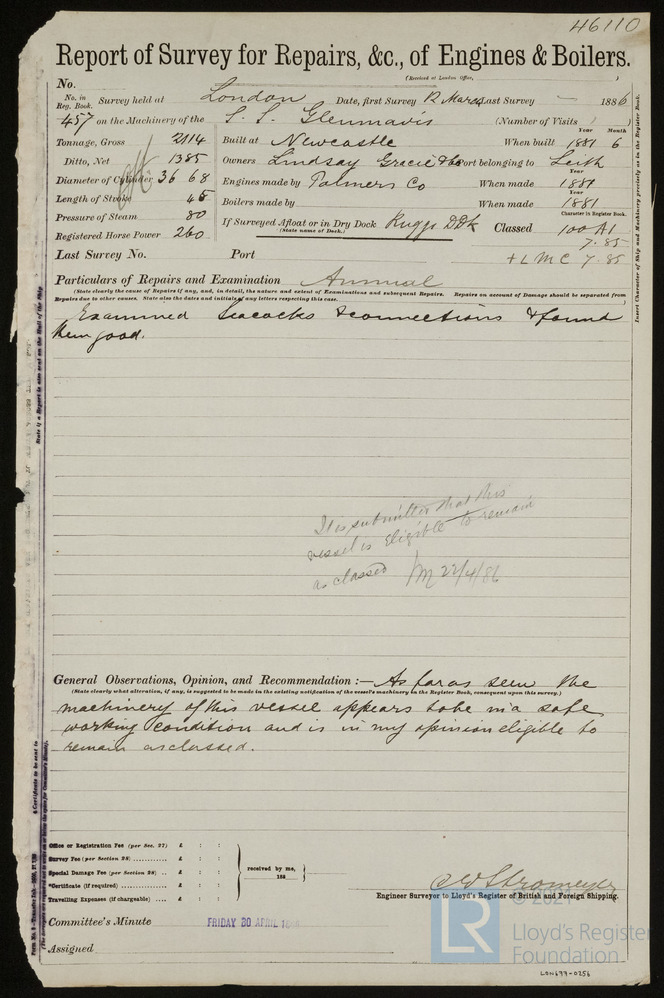 46110
Report of Survey for Repairs, &c., of Engines & Boilers.
(Received at London Office, )
No.
No. in Reg. Book. Survey held at London Date, first Survey 12 March Last Survey — 1886
457 on the Machinery of the S. S. Glenmavis (Number of Visits )
Year Month
Tonnage, Gross 2114 Built at Newcastle When built 1881 6
Ditto, Net 1385 Owners Lindsay Gracie & Co Port belonging to Leith
Year
Diameter of Cylinder 36 68 Engines made by Palmers Co When made 1881
Year
Length of Stroke 45 Boilers made by When made 1881
Pressure of Steam 80 If Surveyed Afloat or in Dry Dock Ruggs DDk Classed 100 A1
Character in Register Book.
(State name of Dock.)
Registered Horse Power 260 7.85
Last Survey No. Port + L M C 7.85
Particulars of Repairs and Examination Annual
(State clearly the Cause of Repairs if any, and, in detail, the nature and extent of Examinations and subsequent Repairs. Repairs on account of Damage should be separated from
Repairs due to other causes. State also the dates and initials of any letters respecting this case. )
Examined Seacocks & connections & found
them good.
It is submitted that this
vessel is eligible to remain
as classed 22/4/86
General Observations, Opinion, and Recommendation :— As far as seen the
(State clearly what alteration, if any, is suggested to be made in the existing notification of the vessel's machinery in the Register Book, consequent upon this survey.)
machinery of this vessel appears to be in a safe
working condition and is in my opinion eligible to
remain as classed.
Office or Registration Fee (per Sec. 27) £ : :
Survey Fee (per Section 28) £ : :
Special Damage Fee (per Section 28) £ : :
*Certificate (if required) £ : :
Travelling Expenses (if chargeable) £ : :
received by me,
188
C E Stromeyer
Engineer Surveyor to Lloyd's Register of British and Foreign Shipping.
Committee's Minute FRIDAY 30 APRIL
Assigned
Insert Character of Ship and Machinery precisely as in the Register Book.
State if a Report is also sent on the Hull of the Ship
© 2021
LR
Lloyd's Register
Foundation
LON697-0256